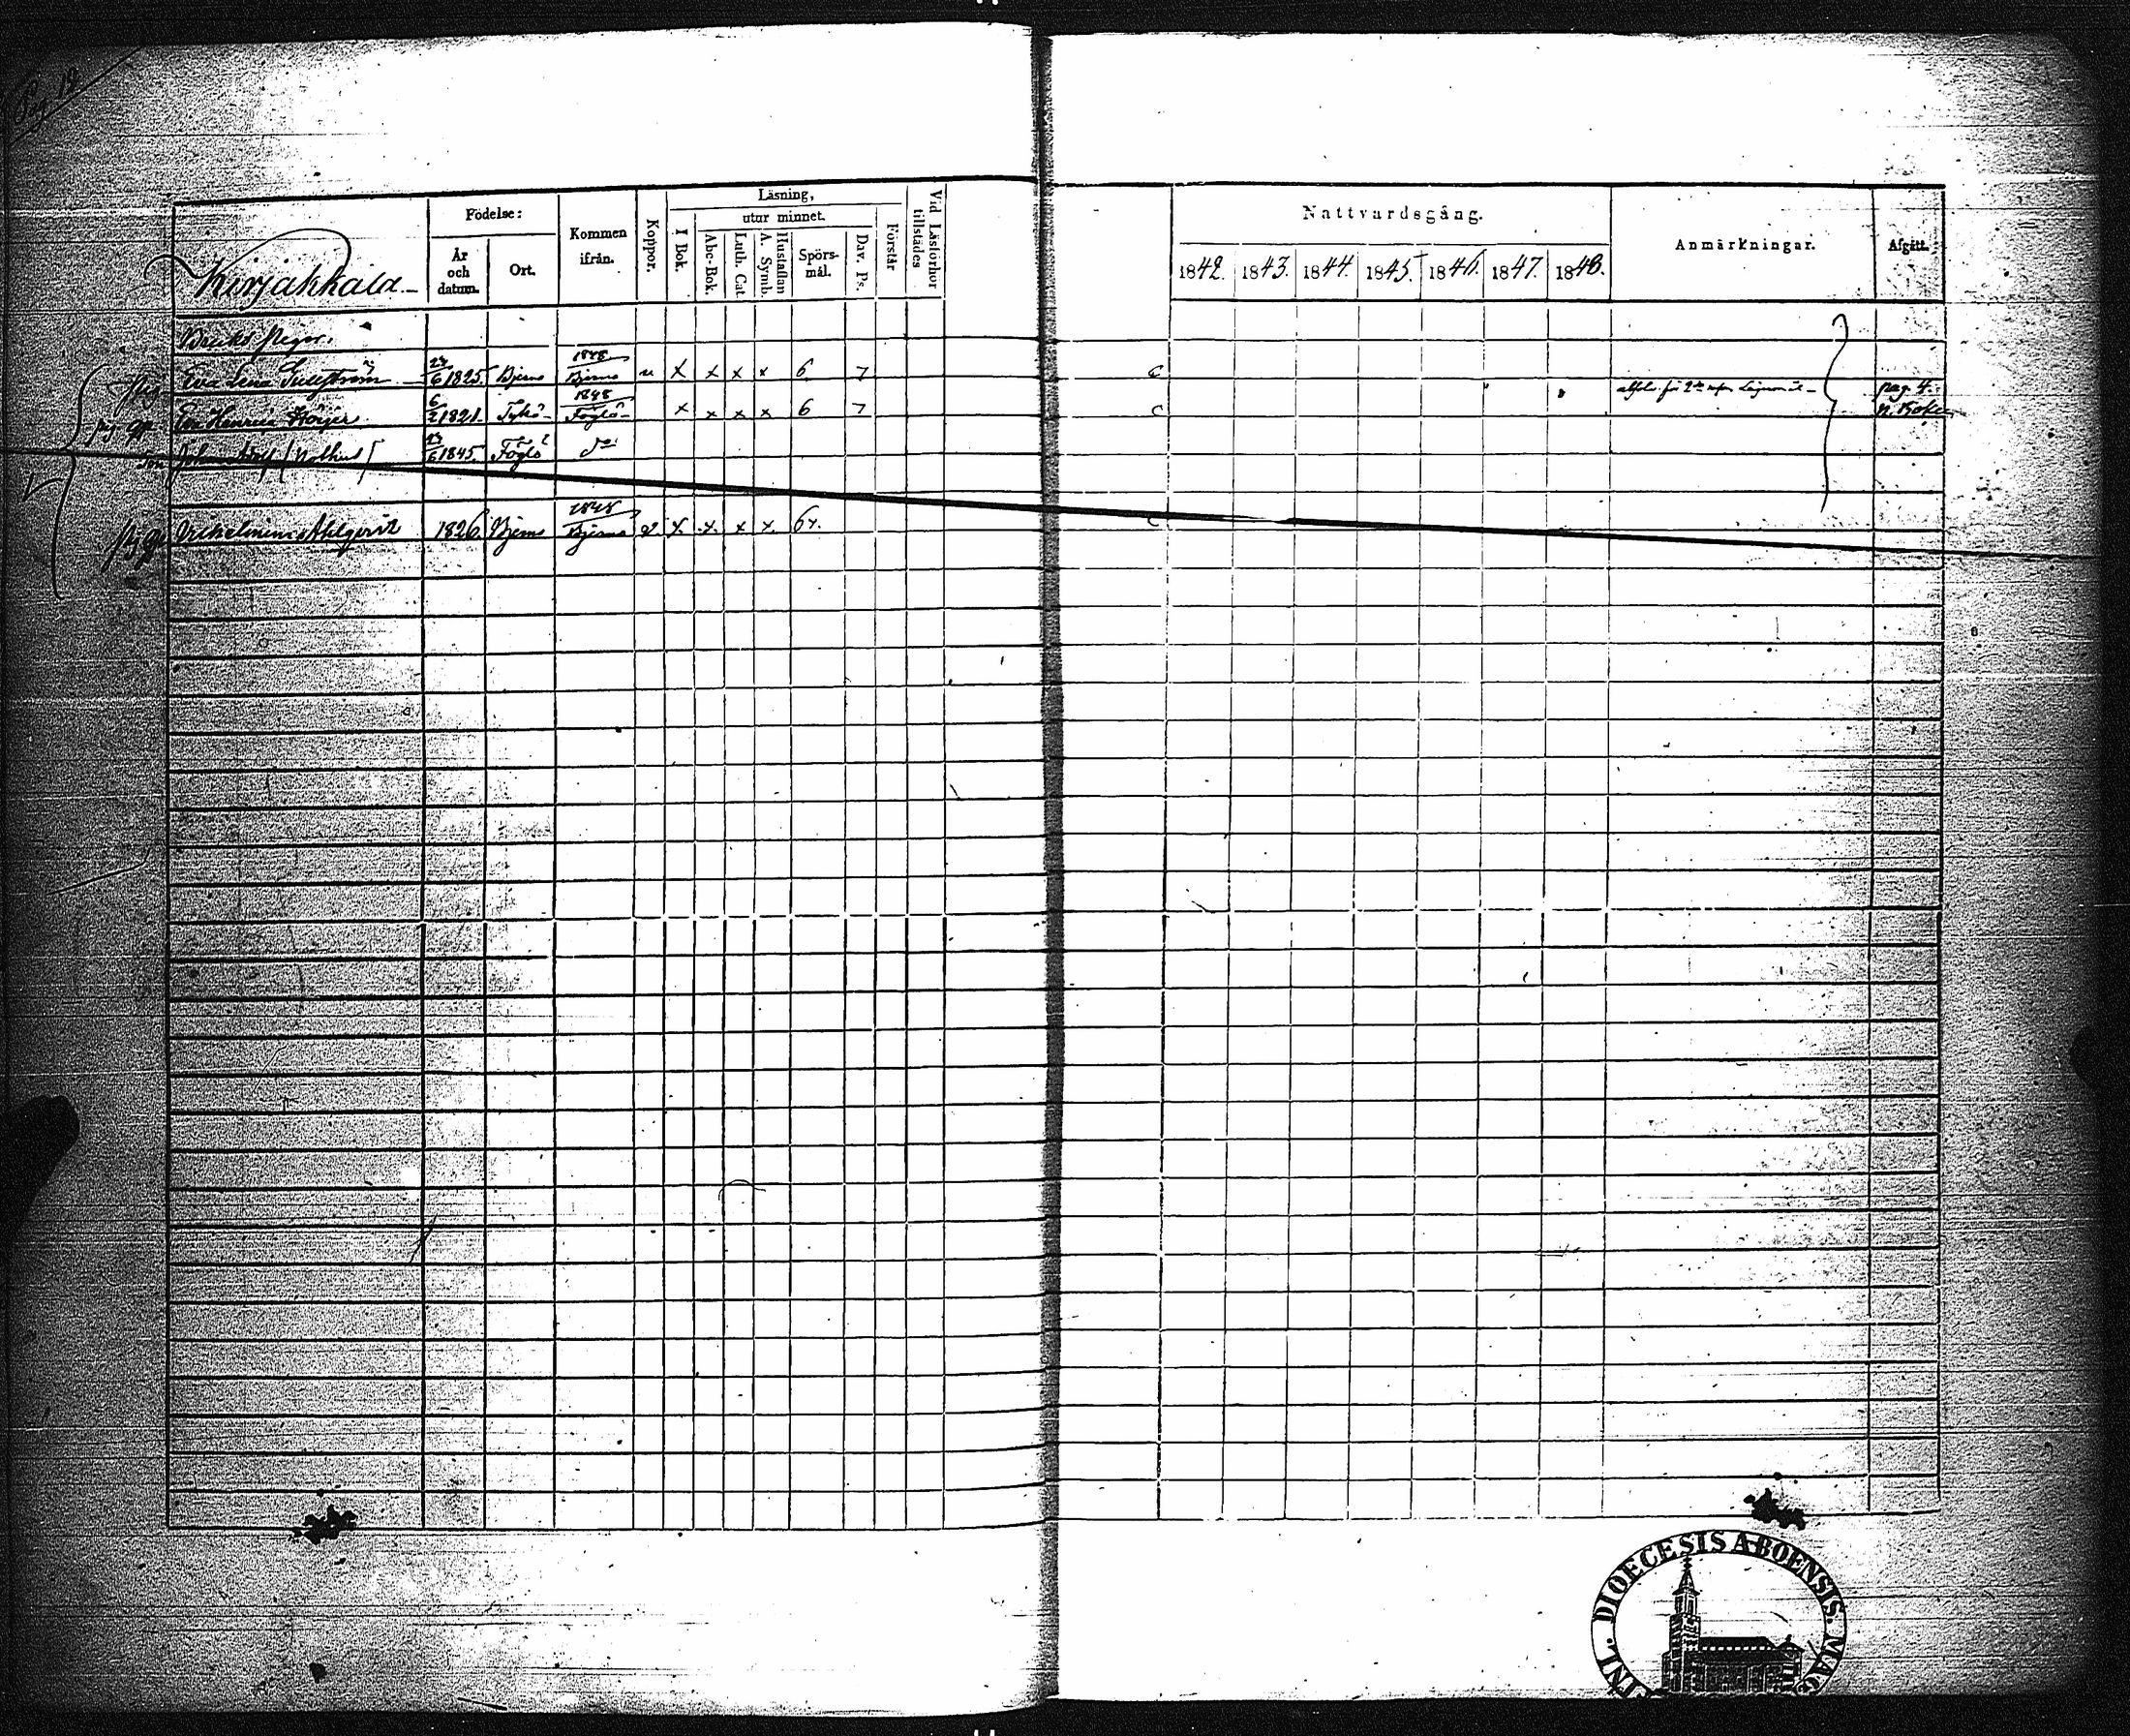 Pag 12
Kirjakkala
Födelse:
År och datum.
Ort.
Kommen ifrån.
Koppor.
Läsning,
I Bok.
utur minnet.
Abc-Bok.
Luth. Cat.
Hustaflan A. Symb.
Spörsmål.
Dav. Ps.
Förstår
Vid Läsförhör tillstädes
Nattvardsgång.
1842. 1843. 1844. 1845. 1846. 1847. 1848.
Anmärkningar.
Afgått.
Bruks pigor.
pig Eva Lena 24/6 1825. Bjerno 1848 Bjerno x x x x 6 7 C
pag. 4.
pig Eva Henrica 6/2 1821. Tykö 1848 Föglö x x x x 6 7 C
son Johan Adolf 24/6 1845 Föglö do
Vilhelmina Ahlqvist 1826. Bjerno 1848 Bjerno x x x x 6 C
FINL. DIOECESIS ABOENSIS. MAG